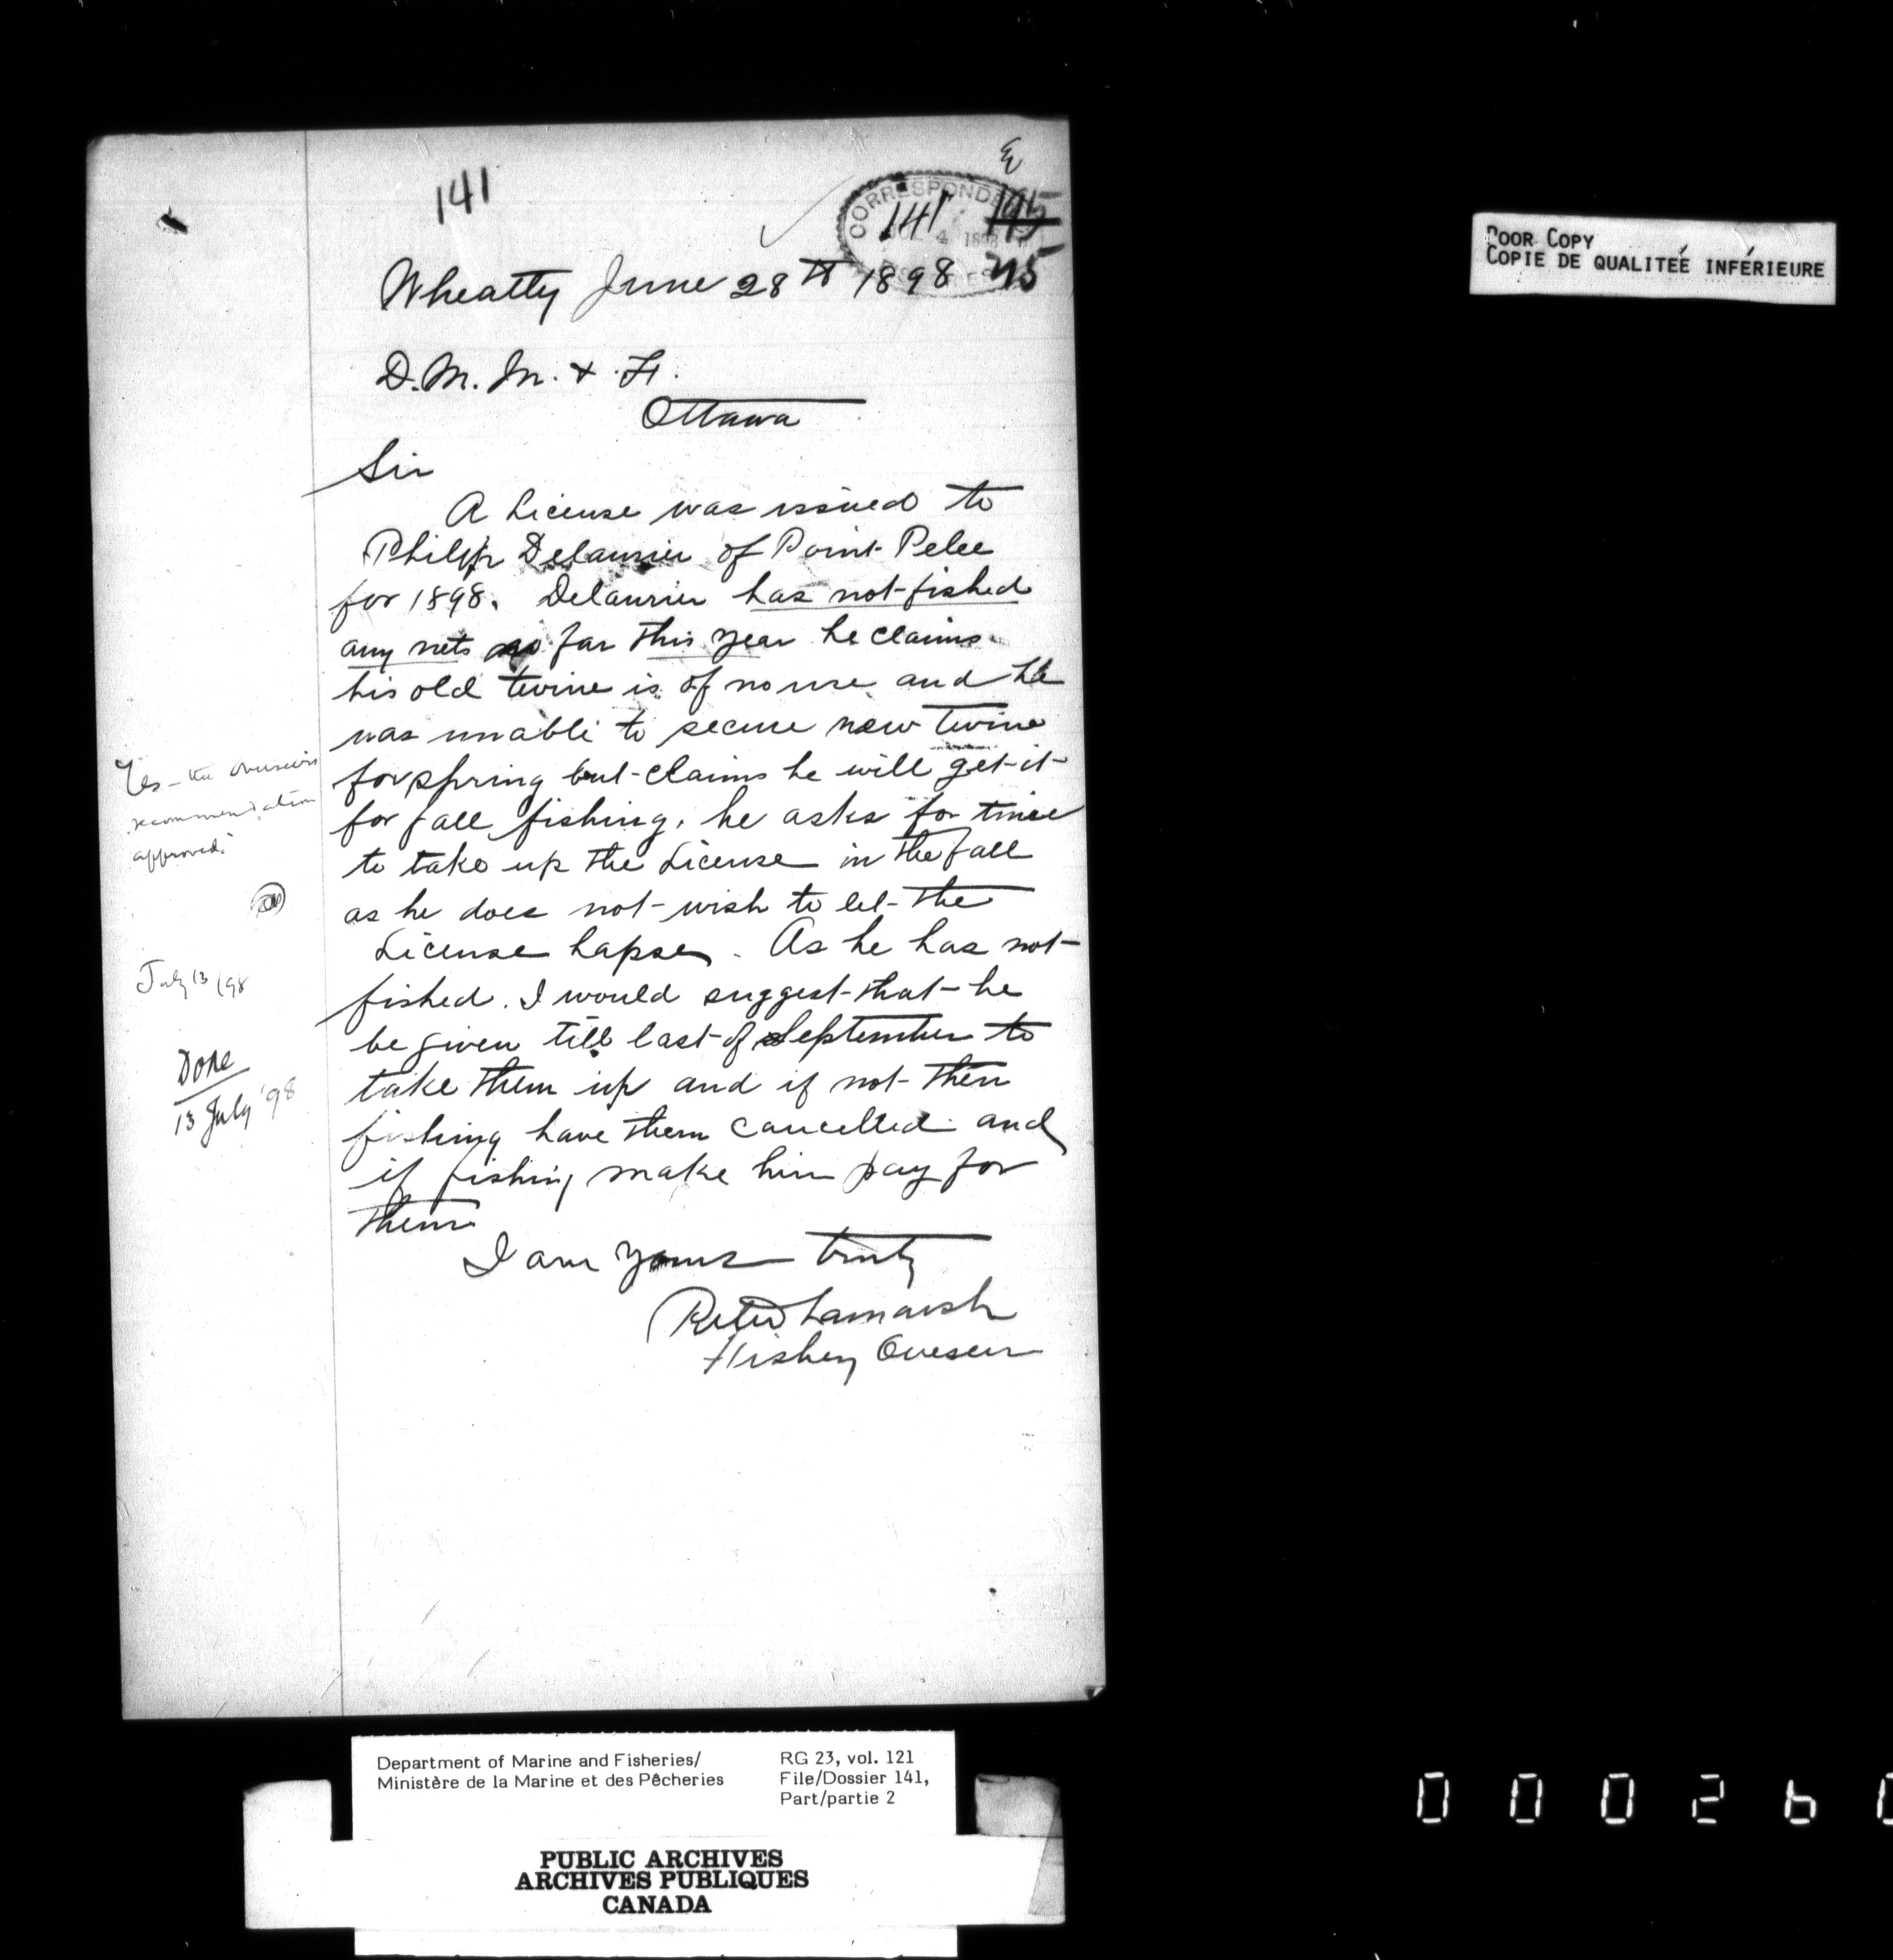 141
E
CORRESPONDE
141
195
JUL 4 1898
45
Wheatly June 28th 1898
D.M. M. & F.
Ottawa
Sir
A License was issued to
Philip Delaurier of Point Pelee
for 1898. Delaurier has not fished
any nets so far this year he claims
his old twine is of no use and he
was unable to secure new twine
for spring but claims he will get it
for fall fishing. he asks for time
to take up the License in the fall
as he does not wish to let the
License lapse. As he has not
fished. I would suggest that he
be given till last of September to
take them up and if not then
fishing have them cancelled and
if fishing make him pay for
them
I am yours truly
Peter Lamarsh
Fishery Overseer
Yes - the overseer's
recommendation
approved.
July 13/98
Done
13 July '98
POOR COPY
COPIE DE QUALITÉE INFÉRIEURE
Department of Marine and Fisheries/
Ministère de la Marine et des Pêcheries
RG 23, vol. 121
File/Dossier 141,
Part/partie 2
PUBLIC ARCHIVES
ARCHIVES PUBLIQUES
CANADA
00026